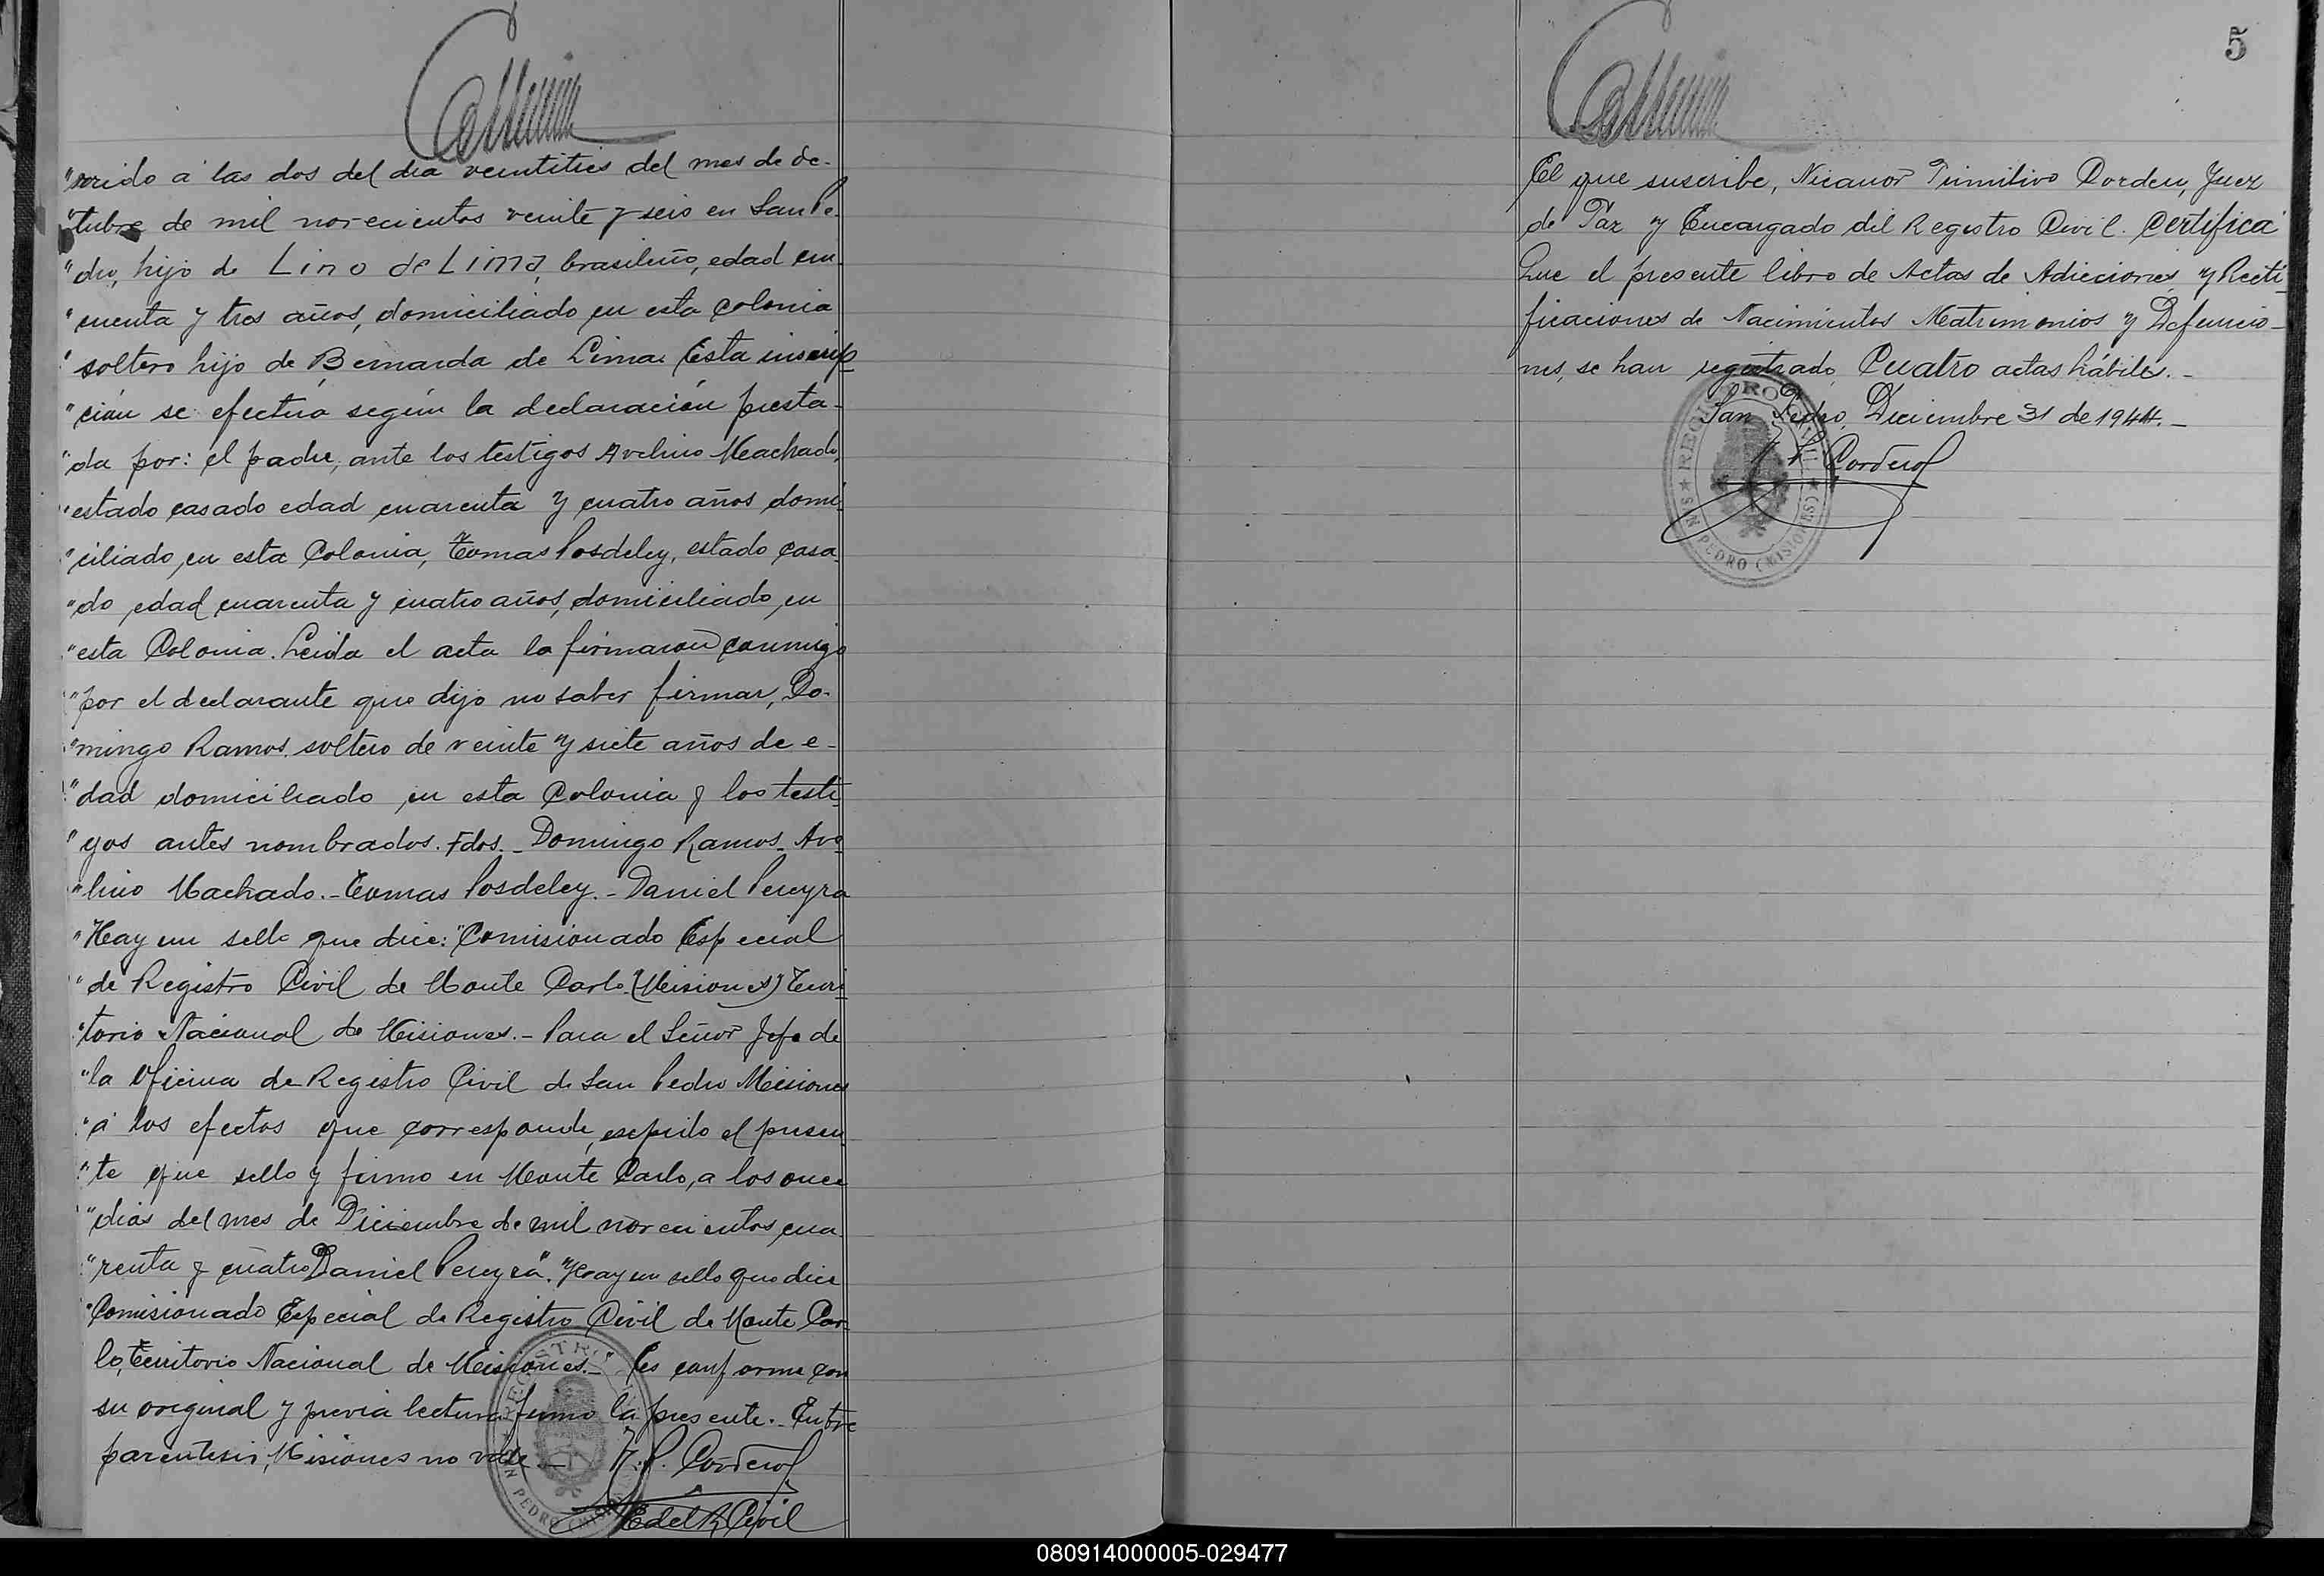 "rrido á las dos del dia veintitres del mes de oc-
"tubre de mil novecientos veinte y seis en San Pe-
"dro, hijo de Lino de Lima, brasileño, edad cin-
"cuenta y tres años, domiciliado en esta colonia
"soltero hijo de Bernarda de Lima. Esta inscrip-
"ción se efectúa según la declaración presta-
"da por: el padre, ante los testigos Avelino Machado,
"estado casado edad cuarenta y cuatro años domi-
"ciliado en esta Colonia, Tomas Posdeley, estado casa-
"do edad cuarenta y cuatro años, domiciliado en
"esta Colonia. Leida el acta la firmaron conmigo
"por el declarante que dijo no saber firmar, Do-
"mingo Ramos soltero de veinte y siete años de e-
"dad domiciliado en esta Colonia y los testi-
"gos antes nombrados. Fdos.- Domingo Ramos- Ave-
"lino Machado.- Tomas Posdeley.- Daniel Pereyra
"Hay un sello que dice: "Comisionado Especial
"de Registro Civil de Monte Carlo (Misiones) Terri-
"torio Nacional de Misiones.- Para el Señor Jefe de
"la Oficina de Registro Civil de San Pedro Misiones
"á los efectos que corresponde, expido el presen-
"te que sello y firmo en Monte Carlo, a los once
"dias del mes de Diciembre de mil novecientos cua-
"renta y cuatro Daniel Pereyra". "Hay un sello que dice
"Comisionado Especial de Registro Civil de Monte Car-
lo, Territorio Nacional de Misiones.-" Es conforme con
su original y previa lectura firmo la presente.- Entre
parentesis, Misiones no vale.- N. P. Cordero
E del R. Civil
REGISTRO
N PEDRO (MISI
5
El que suscribe, Nicanor Primitivo Cordero, Juez
de Paz y Encargado del Registro Civil. Certifica
Que el presente libro de Actas de Adiciones y Recti-
ficaciones de Nacimientos Matrimonios y Defuncio-
nes, se han registrado Cuatro actas hábiles.-
San Pedro, Diciembre 31 de 1944.-
N. P. Cordero
REGISTRO CIVIL
SAN PEDRO (MISIONES)
080914000005-029477